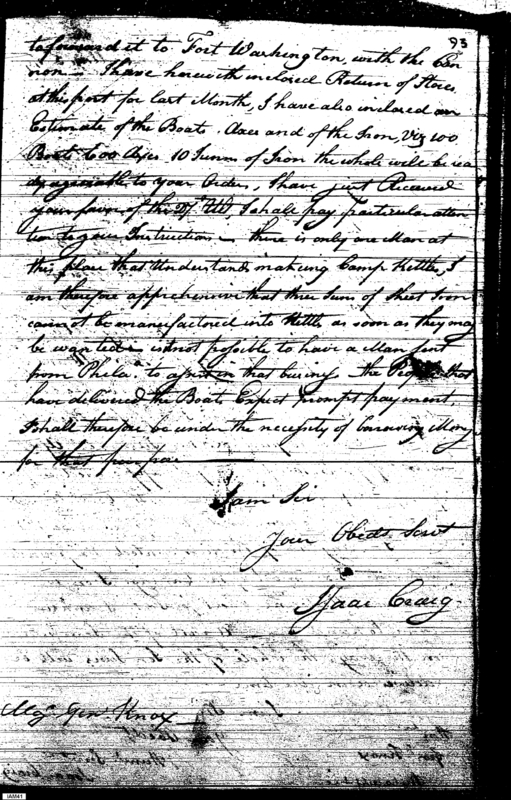 93
to forward it to Fort Washington, with the Can
non — I have herewith inclosed Return of Stores
at this post for last Month, I have also inclosed an
Estimate of the Boats. Axes and of the Iron, Viz 100
Boats 600 Axes. 10 Tunns of Iron the whole will be rea
dy agreeable to your Orders, I have just Received
your favor of the Ult, I shall pay particular atten
tion to your Instructions — there is only one Man at
this place that Understands making Camp Kettles, I
am therefore apprehensive that three Tuns of Sheet Iron
cannot be manufactored into Kettles as soon as they may
be wanted is it not possible to have a Man sent
from Phila to assist in that business the People that
have delivered the Boats Expect prompt payment
I shall therefore be under the necessity of borrowing Money
for that purpose
I am Sir
Your Obedt. Servt
Isaac Craig
Majr Genl Knox
IAM41